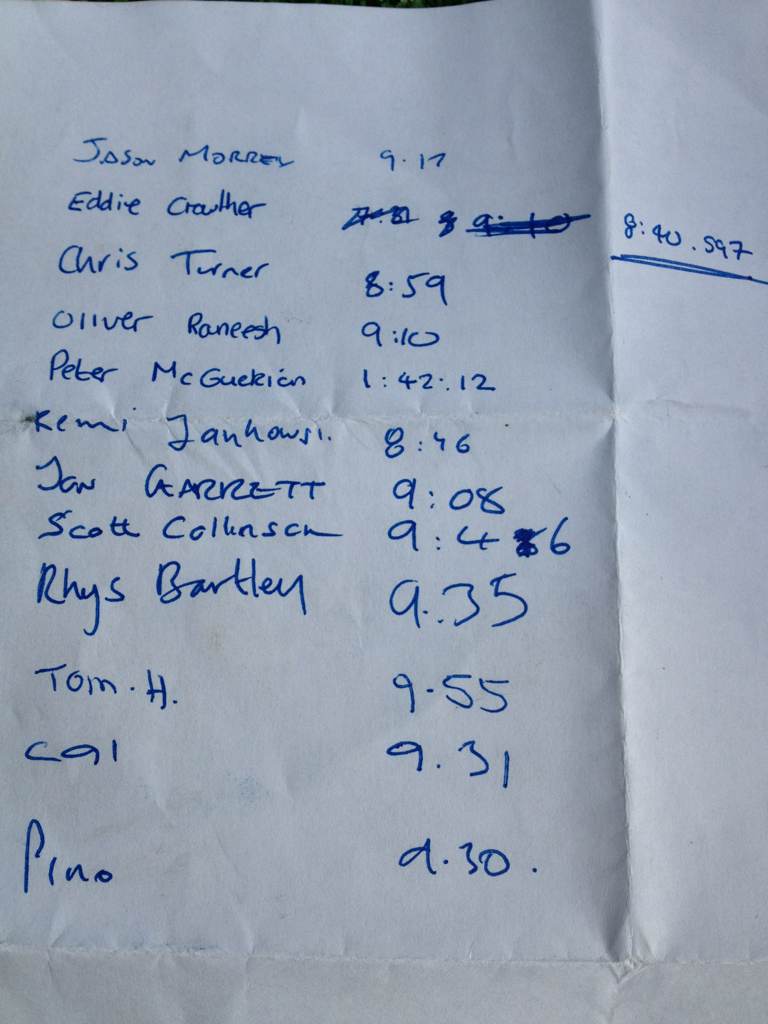 Jason Morrey 9.17
Eddie Crowther 9:10 8:40.597
Chris Turner 8:59
Oliver Raneesh 9:10
Peter McGuekian 1:42:12
Remi Jankowsi. 8:46
Jon GARRETT 9:08
Scott Collinson 9:46
Rhys Bartley 9.35
Tom.H. 9.55
Cal 9.31
Pino 9.30.